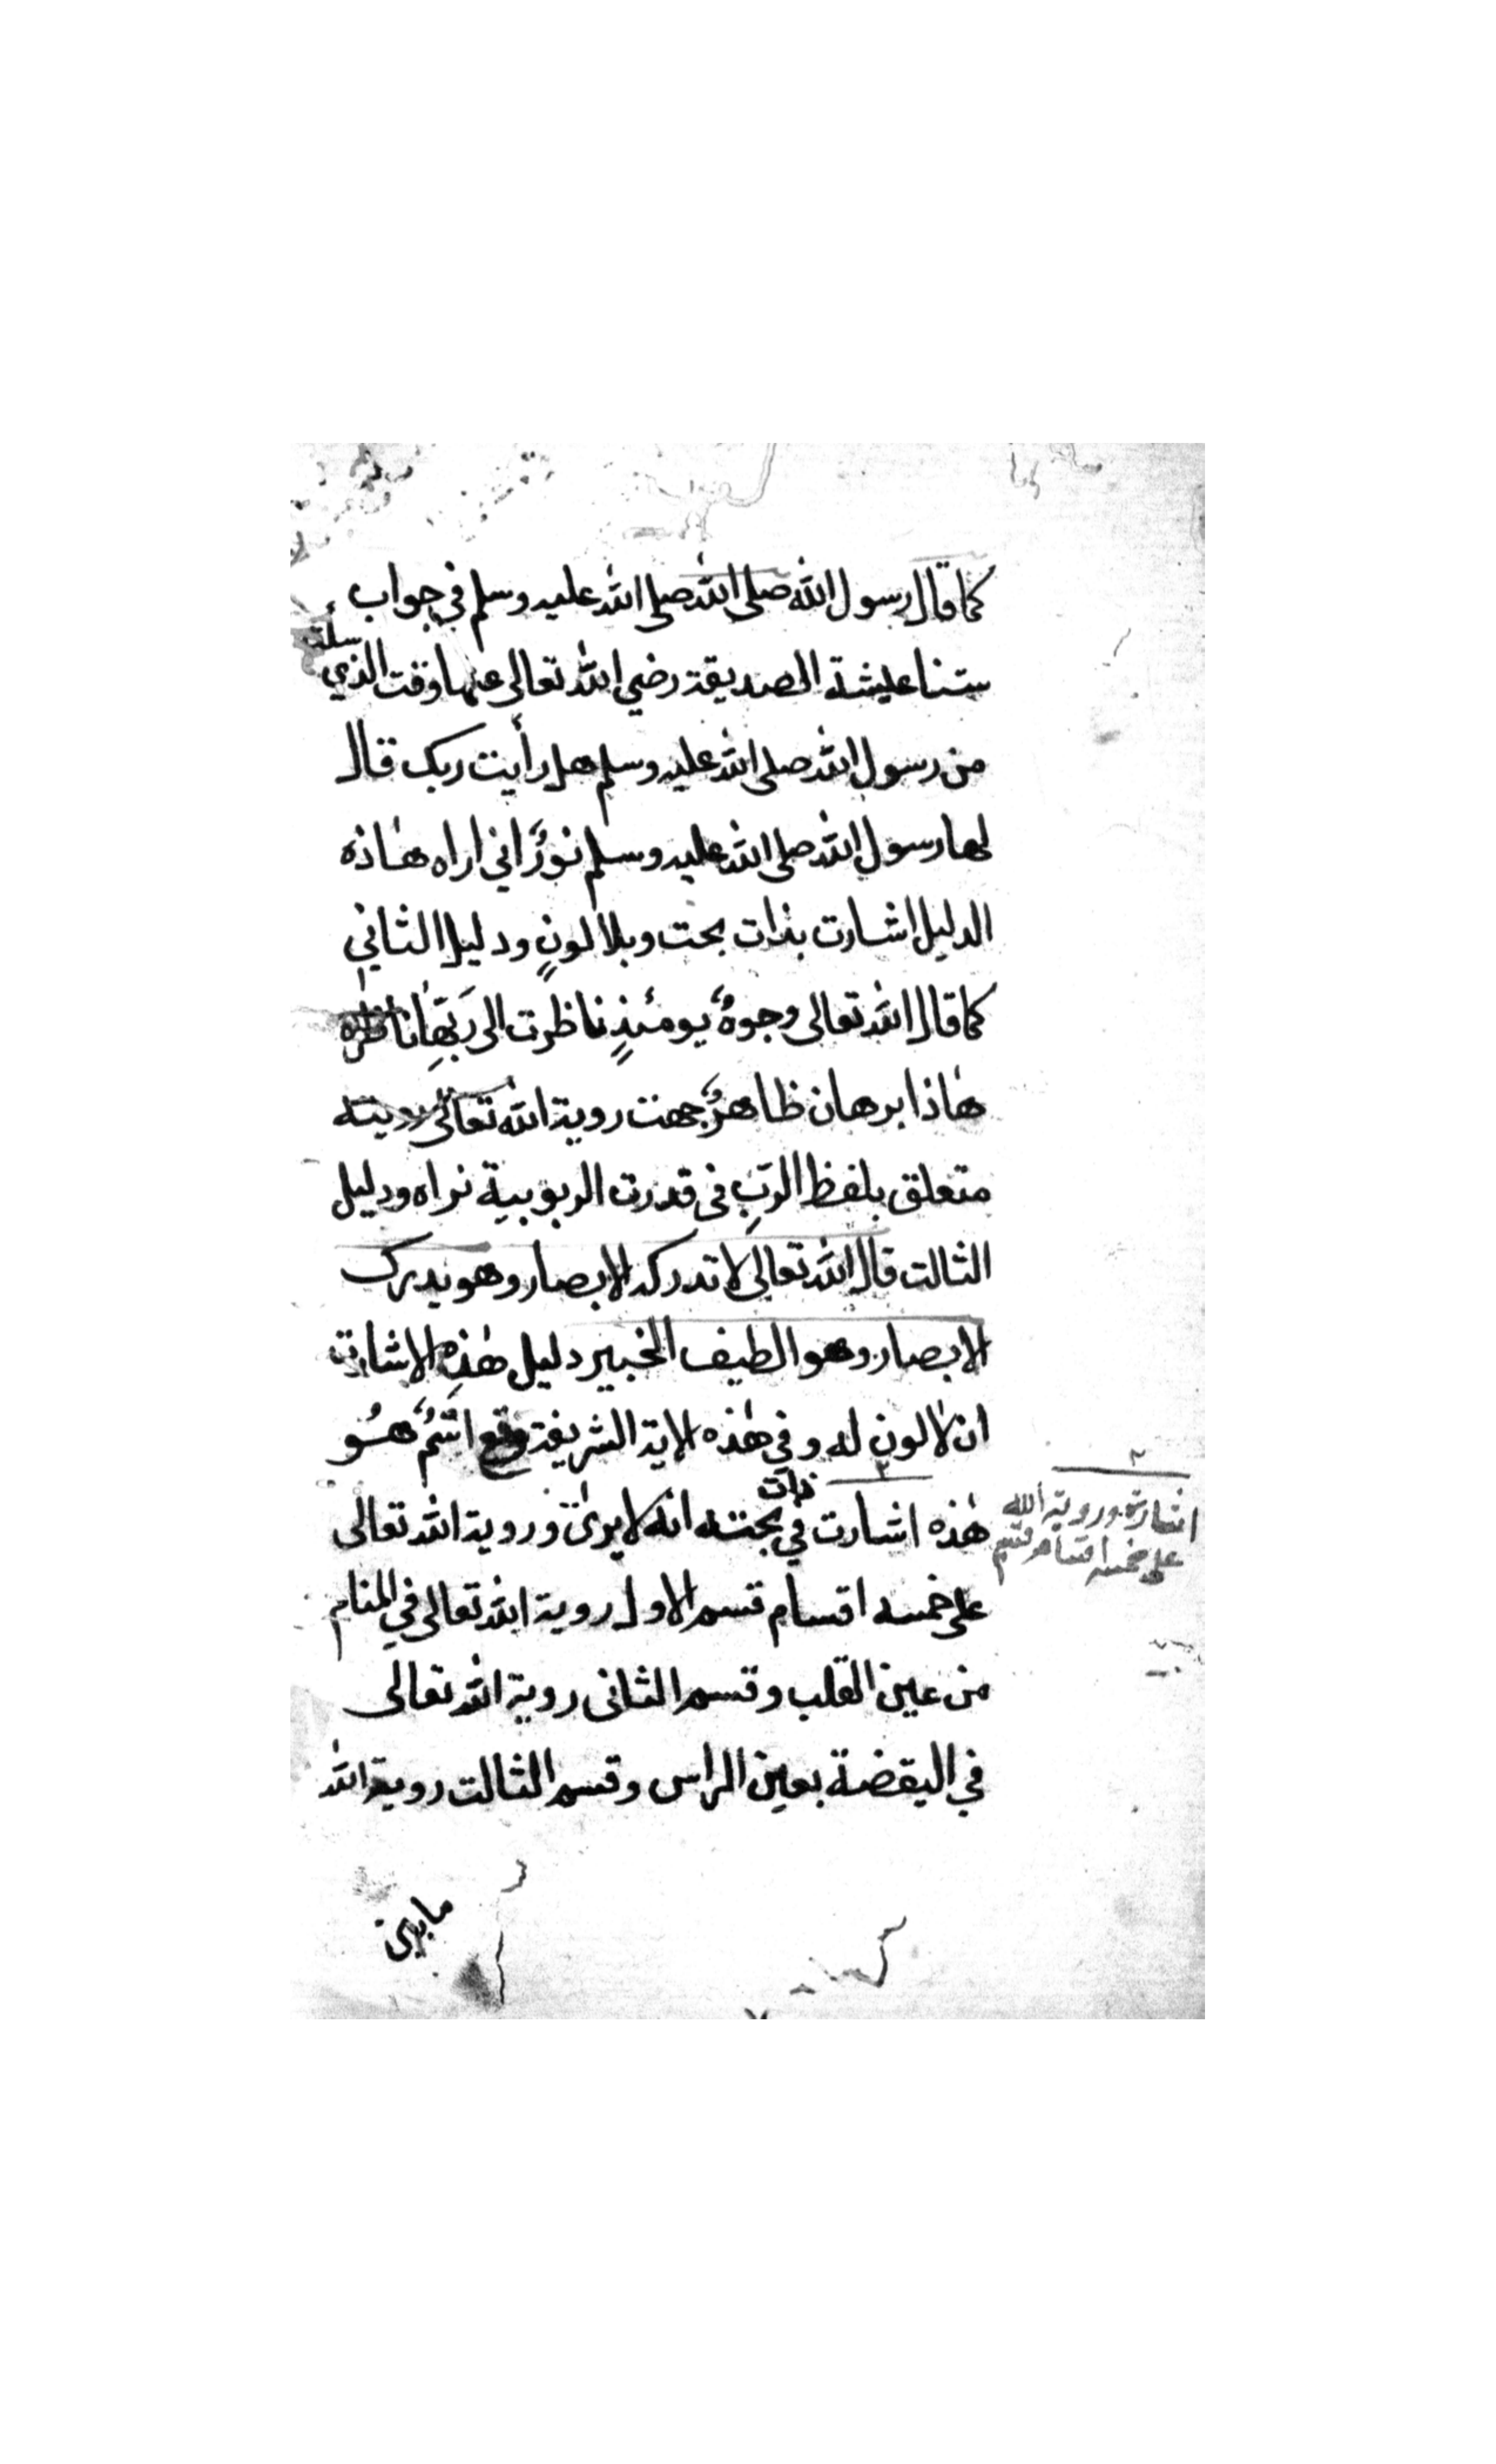 كما قال رسول الله صلى الله صلى الله عليه وسلم في جواب
ستنا عليشة الصديقة رضي الله تعالى عنها وقت الذي سئلة
من رسول الله صلى الله عليه وسلم هل رأيت ربك قال
لها رسول الله صلى الله عليه وسلم نورٌ اني اراه هٰاذه
الدليل اشارت بذات بحت وبلا لونٍ ودليل الثاني
كما قال الله تعالى وجوهٌ يومئذٍ ناظرت الى ربِّها ناظره
هٰاذا برهان ظاهرٌ جهت روية الله تعالى رويته
متعلق بلفظ الربِّ فى قدرت الربوبية نراه ودليل
الثالت قال الله تعالى لا تدركه الابصار وهو يدرك
الابصار وهو الطيف الخبير دليل هٰذه الاشارت
ان لا لون له وفي هٰذه الاية الشريفة وقع اسمٌ هُو
هٰذه اشارت في ذات بحته انه لا يرىٰ وروية الله تعالى
على خمسه اقسام قسم الاول روية الله تعالى في المنام
من عين القلب وقسم الثانى روية الله تعالى
في اليقضة بعين الراس وقسم الثالت روية الله
اشارة وروية الله
على خمسه اقسام